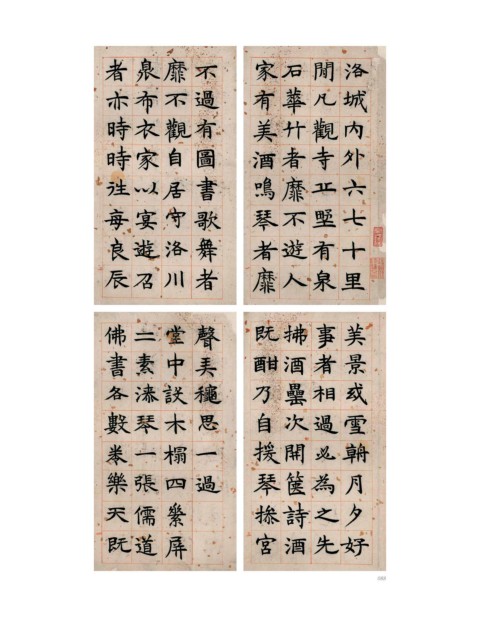 洛城內外六七十里
閒凡觀寺丘墅有泉
石華竹者靡不遊人
家有美酒鳴琴者靡
不過有圖書歌舞者
靡不觀自居守洛川
臮布衣家以宴遊召
者亦時時往每良辰
美景或雪朝月夕好
事者相過必為之先
拂酒罍次開篋詩酒
既酣乃自援琴操宮
聲弄穐思一過
堂中設木榻四素屏
二素漆琴一張儒道
佛書各數卷樂天既